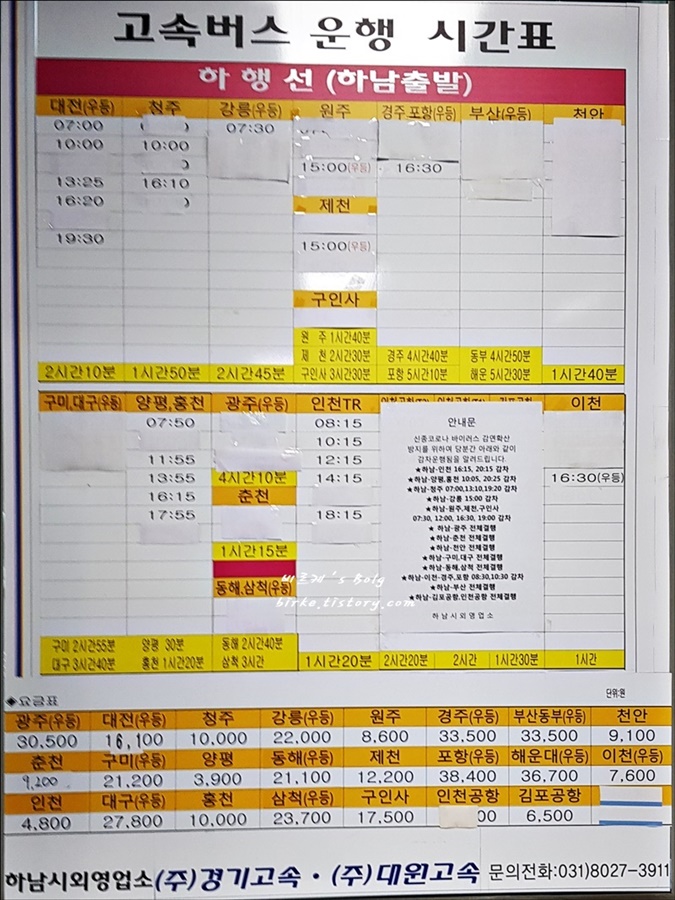 고속버스 운행 시간표
하 행 선 (하남출발)
대전(우등) 청주 강릉(우등) 원주 경주 포항(우등) 부산(우등) 천안
07:00 07:30
10:00 10:00
15:00(우등) 16:30
13:25 16:10
16:20 제천
19:30 15:00(우등)
구인사
원 주 1시간40분
제 천 2시간30분 경주 4시간40분 동부 4시간50분
2시간10분 1시간50분 2시간45분 구인사 3시간30분 포항 5시간10분 해운 5시간30분 1시간40분
구미,대구(우등) 양평,홍천 광주(우등) 인천TR 이천
07:50 08:15
10:15
11:55 12:15
13:55 4시간10분 14:15 16:30(우등)
16:15 춘천
17:55 18:15
1시간15분
동해,삼척(우등)
안내문
신종코로나 바이러스 감연확산
방지를 위하여 당분간 아래와 같이
감차운행됨을 알려드립니다.
★하남-인천 16:15, 20:15 감차
★하남-양평,홍천 10:05, 20:25 감차
★하남-청주 07:00,13:10,19:20 감차
★하남-강릉 15:00 감차
★하남-원주,제천,구인사
07:30, 12:00, 16:30, 19:00 감차
★ 하남-광주 전체결행
★하남-춘천 전체결행
★하남-천안 전체결행
★하남-구미,대구 전체결행
★하남-동해,삼척 전체결행
★하남-이천-경주,포항 08:30,10:30 감차
★하남-부산 전체결행
★하남-김포공항,인천공항 전체결행
하남시외영업소
비르케's Bolg
birke.tistory.com
구미 2시간55분 양평 30분 동해 2시간40분
대구 3시간40분 홍천 1시간20분 삼척 3시간 1시간20분 2시간20분 2시간 1시간30분 1시간
◈요금표 단위:원
광주(우등) 대전(우등) 청주 강릉(우등) 원주 경주(우등) 부산동부(우등) 천안
30,500 16,100 10,000 22,000 8.600 33,500 33,500 9,100
춘천 구미(우등) 양평 동해(우등) 제천 포항(우등) 해운대(우등) 이천(우등)
9,200 21,200 3,900 21,100 12,200 38,400 36,700 7,600
인천 대구(우등) 홍천 삼척(우등) 구인사 인천공항 김포공항
4,800 27,800 10,000 23,700 17,500 00 6,500
하남시외영업소 (주)경기고속 · (주)대원고속 문의전화:031)8027-3911